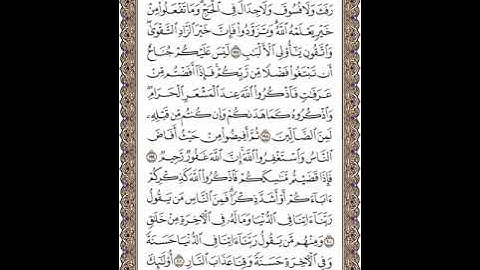 رَفَثَ وَلَا فُسُوقَ وَلَا جِدَالَ فِي ٱلْحَجِّ وَمَا تَفْعَلُوا۟ مِنْ
خَيْرٍ يَعْلَمْهُ ٱللَّهُ وَتَزَوَّدُوا۟ فَإِنَّ خَيْرَ ٱلزَّادِ ٱلتَّقْوَىٰ
وَٱتَّقُونِ يَٰٓأُو۟لِي ٱلْأَلْبَٰبِ ١٩٧ لَيْسَ عَلَيْكُمْ جُنَاحٌ
أَن تَبْتَغُوا۟ فَضْلًا مِّن رَّبِّكُمْ فَإِذَآ أَفَضْتُم مِّنْ
عَرَفَٰتٍ فَٱذْكُرُوا۟ ٱللَّهَ عِندَ ٱلْمَشْعَرِ ٱلْحَرَامِ
وَٱذْكُرُوهُ كَمَا هَدَىٰكُمْ وَإِن كُنتُم مِّن قَبْلِهِۦ
لَمِنَ ٱلضَّآلِّينَ ١٩٨ ثُمَّ أَفِيضُوا۟ مِنْ حَيْثُ أَفَاضَ
ٱلنَّاسُ وَٱسْتَغْفِرُوا۟ ٱللَّهَ إِنَّ ٱللَّهَ غَفُورٌ رَّحِيمٌ ١٩٩
فَإِذَا قَضَيْتُم مَّنَٰسِكَكُمْ فَٱذْكُرُوا۟ ٱللَّهَ كَذِكْرِكُمْ
ءَابَآءَكُمْ أَوْ أَشَدَّ ذِكْرًا فَمِنَ ٱلنَّاسِ مَن يَقُولُ
رَبَّنَآ ءَاتِنَا فِي ٱلدُّنْيَا وَمَا لَهُۥ فِي ٱلْءَاخِرَةِ مِنْ خَلَٰقٍ
٢٠٠ وَمِنْهُم مَّن يَقُولُ رَبَّنَآ ءَاتِنَا فِي ٱلدُّنْيَا حَسَنَةً
وَفِي ٱلْءَاخِرَةِ حَسَنَةً وَقِنَا عَذَابَ ٱلنَّارِ ٢٠١ أُو۟لَٰٓئِكَ